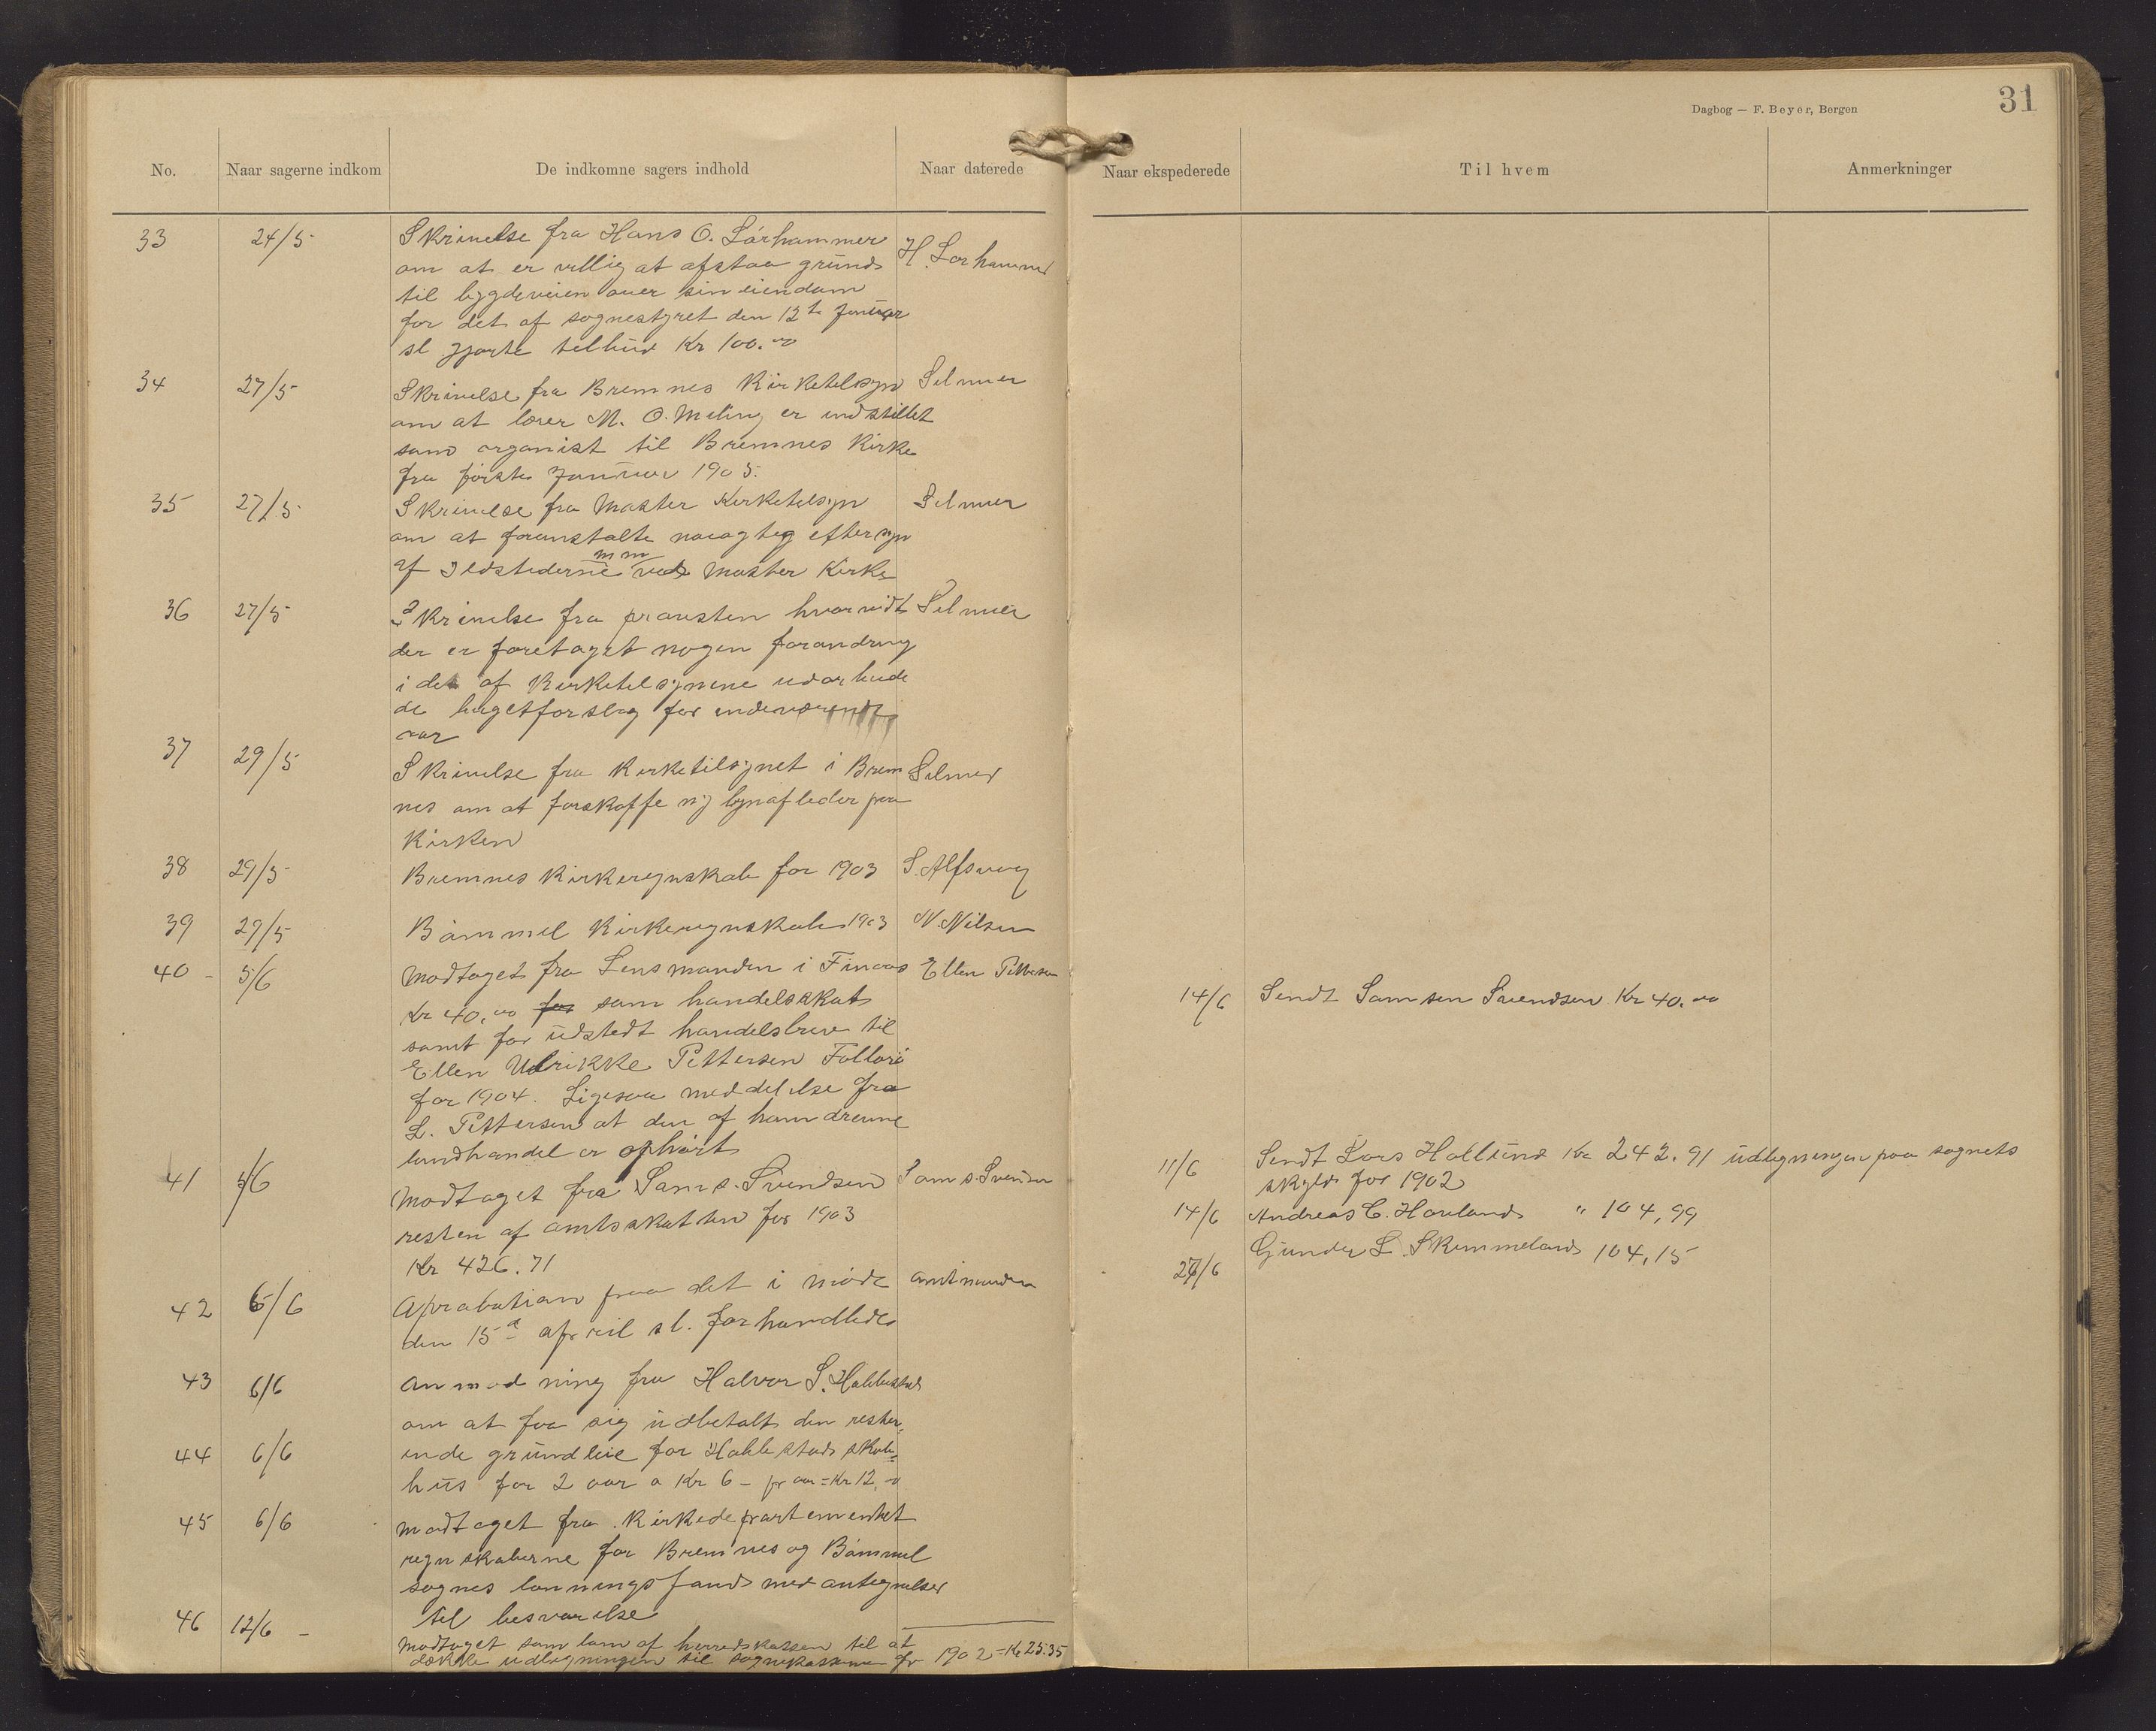 Dagbog — F. Beyer, Bergen
31
No. Naar sagerne indkom De indkomne sagers indhold Naar daterede
Naar ekspederede Til hvem Anmerkninger
33 24/5 Skrivelse fra Hans O. Sørhammer H. Sørhammer
om at er villig at afstaa grund
til bygdeveien over sin eiendom
for det af sognestyret den 12te Januar
sl gjorte tilbud Kr 100.00
34 27/5 Skrivelse fra Bremnes Kirketilsyn Selmer
om at lærer M. O. Meling er indstillet
som organist til Bremnes Kirke
fra første Januar 1905.
35 27/5 Skrivelse fra Moster Kirketilsyn Selmer
om at foranstalte nøiagtig eftersyn
af Ildstederne mm ved Moster Kirke
36 27/5 Skrivelse fra provsten hvorvidt Selmer
der er foretaget nogen forandring
i det af Kirketilsynene udarbeide
de bugetforslag for indeværende
aar
37 29/5 Skrivelse fra Kirketilsynet i Brem Selmer
nes om at forskaffe ny lynafleder paa
Kirken
38 29/5 Bremnes Kirkeregnskab for 1903 S. Alfsvaag
39 29/5 Bømmel Kirkeregnskab 1903 N. Nilsen
40 - 5/6 Modtaget fra Lensmanden i Finaas Ellen Pettersen
Kr 40.00 for som handelsskat
samt for udstedt handelsbrev til
Ellen Ulrikke Pettersen Føllorø
for 1904. Ligesaa meddelelse fra
L. Pettersen at den af ham drevne
landhandel er ophørt
14/6 Sendt Samson Svendsen Kr 40.00
41 5/6 Modtaget fra Sams. Svendsen Sams. Svendsen
resten af amtsskatten for 1903
Kr 426.71
11/6 Sendt Lars Hollund Kr 242.91 udligningen paa sognets
skyld for 1902
14/6 Andreas C. Hovland " 104,99
27/6 Gunder L. Skimmeland 104,15
42 6/6 Aprobation paa det i møde amtmanden
den 15de april sl. forhandlede
43 6/6 Anmodning fra Halvor S. Habbestad
om at faa sig udbetalt den rester,
44 6/6 ende grundleie for Habbestad skole
hus for 2 aar a Kr 6 - pr aar = Kr 12,00
45 6/6 modtaget fra Kirkedepartementet
regnskaberne for Bremnes og Bømmel
sognes lønningsfond med antegnelser
til besvarelse
46 12/6 - Modtaget som laan af herredskassen til at
dække udligningen til sognekassen for 1902 = Kr 25.35